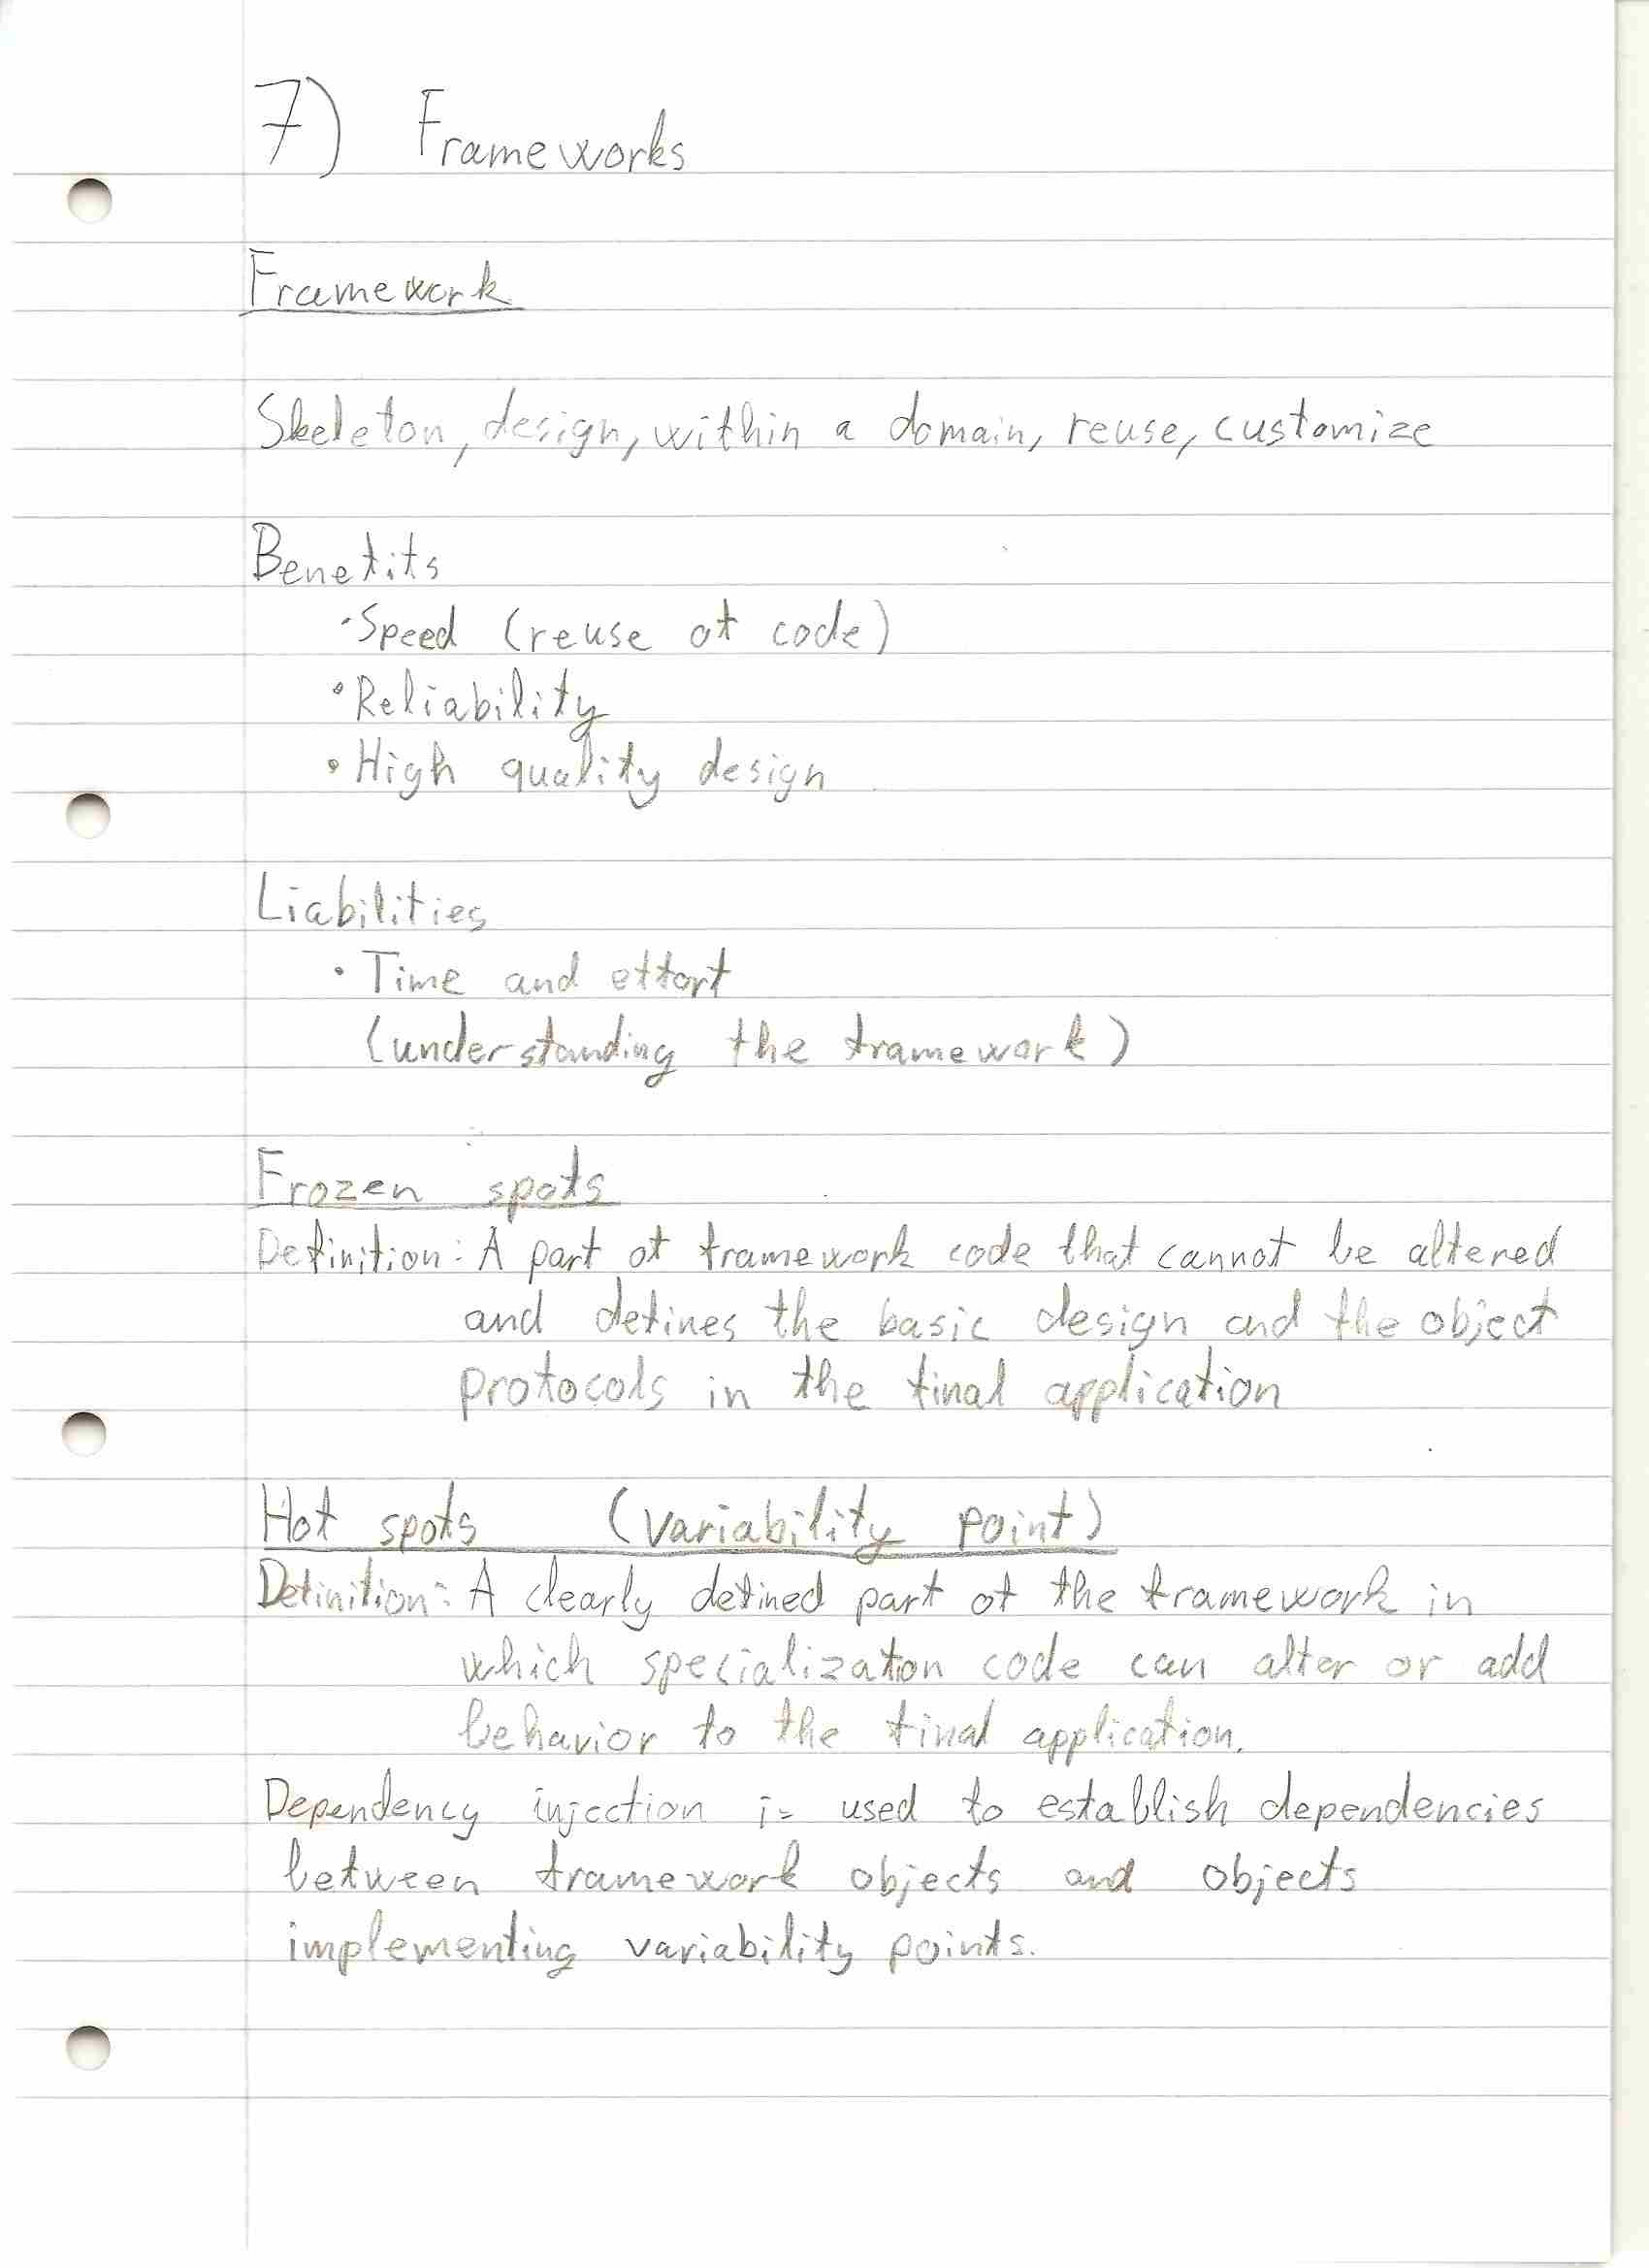 7) Frameworks
Framework
Skeleton, design, within a domain, reuse, customize
Benefits
• Speed (reuse of code)
• Reliability
• High quality design
Liabilities
• Time and effort
(understanding the framework)
Frozen spots
Definition: A part of framework code that cannot be altered
and defines the basic design and the object
protocols in the final application
Hot spots (variability point)
Definition: A clearly defined part of the framework in
which specializaton code can alter or add
behavior to the final application.
Dependency injection is used to establish dependencies
between framework objects and objects
implementing variability points.